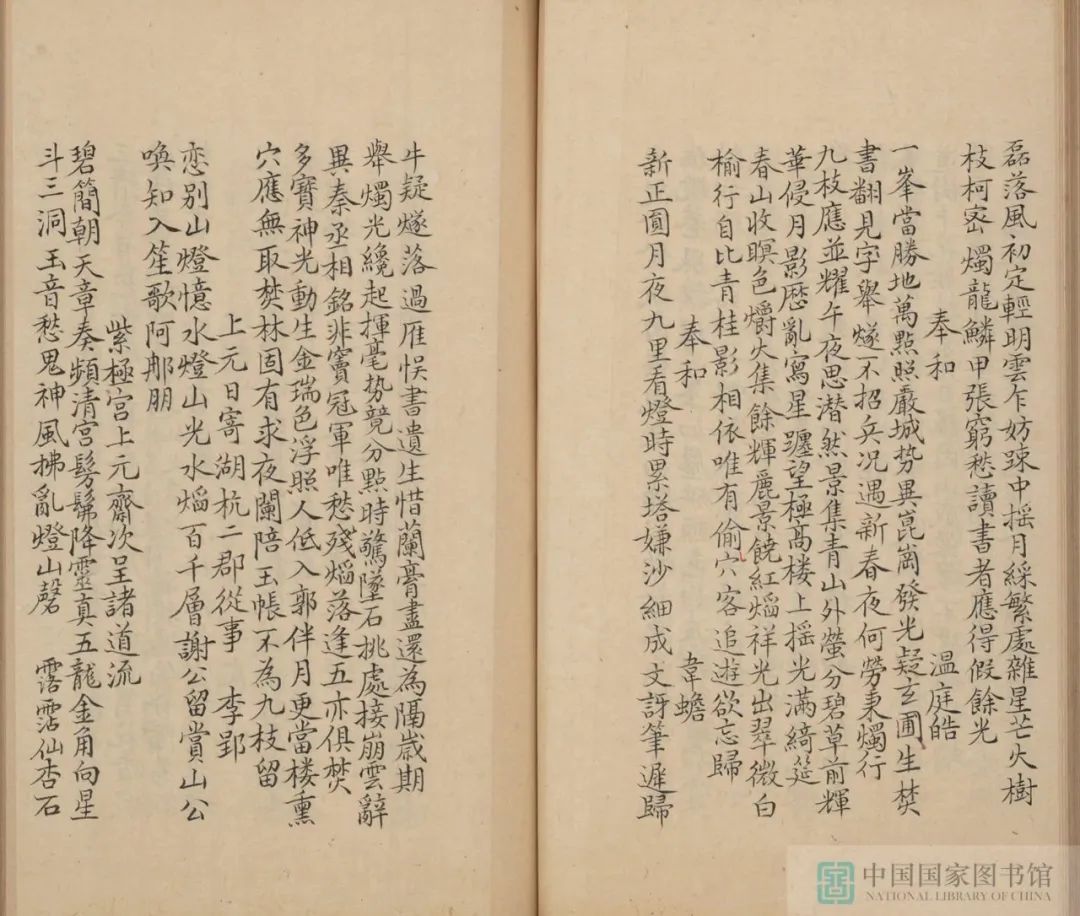 磊落風初定輕明雲乍妨踈中摇月綵繁處雜星芒火樹
枝柯宻燭龍鱗甲張窮愁讀書者應得假餘光
奉和 温庭皓
一峯當勝地萬點照嚴城势異崑崗發光疑玄圃生焚
書翻見字舉燧不招兵况遇新春夜何勞秉燭行
九枝應並耀午夜思潜然景集青山外螢分碧草前輝
華侵月影歷亂寫星躔望極高楼上摇光满綺筵
春山收暝色爝火集餘輝麗景饒紅熖祥光出翠微白
榆行自比青桂影相依唯有偷穴客追遊欲忘歸
奉和 韋蟾
新正圓月夜九里看燈時累塔嫌沙細成文訝筆遲歸
牛疑燧落過雁悮書遺生惜蘭膏盡還為隔歳期
舉燭光纔起揮毫势競分點時驚墜石挑處接崩雲辭
異秦丞相銘非竇冠軍唯愁殘熖落逢五亦俱焚
多寶神光動生金瑞色浮照人低入郭伴月更當楼熏
穴應無取焚林固有求夜闌陪玉帳不為九枝留
上元日寄湖杭二郡從事 李郢
恋别山燈憶水燈山光水熖百千層謝公留賞山公
喚知入笙歌阿那朋
紫極宫上元齋次呈諸道流
碧簡朝天章奏頻清宫髣髴降靈真五龍金角向星
斗三洞玉音愁鬼神風拂亂燈山磬 露霑仙杏石
中国国家图书馆
NATIONAL LIBRARY OF CHINA